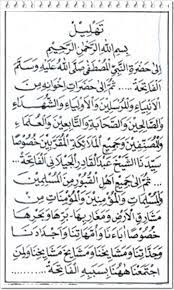 تَهْلِيْل
بِسْمِ اللهِ الرَّحْمٰنِ الرَّحِيْمِ
إِلٰى حَضْرَةِ النَّبِيِّ الْمُصْطَفٰى صَلَّى اللهُ عَلَيْهِ وَسَلَّمَ
الْفَاتِحَةُ .... ثُمَّ إِلٰى حَضَرَاتِ إِخْوَانِهِ مِنَ
الْأَنْبِيَاءِ وَالْمُرْسَلِيْنَ وَالْأَوْلِيَاءِ وَالشُّهَدَاءِ
وَالصَّالِحِيْنَ وَالصَّحَابَةِ وَالتَّابِعِيْنَ وَالْعُلَمَاءِ
وَالْمُصَنِّفِيْنَ وَجَمِيْعِ الْمَلَائِكَةِ الْمُقَرَّبِيْنَ خُصُوْصًا
سَيِّدِنَا الشَّيْخِ عَبْدِ الْقَادِرِ الْجَيْلَانِي الْفَاتِحَةُ...
... ثُمَّ إِلٰى جَمِيْعِ أَهْلِ الْقُبُوْرِ مِنَ الْمُسْلِمِيْنَ
وَالْمُسْلِمَاتِ وَالْمُؤْمِنِيْنَ وَالْمُؤْمِنَاتِ مِنْ
مَشَارِقِ الْأَرْضِ وَمَغَارِبِهَا بَرِّهَا وَبَحْرِهَا
خُصُوْصًا آبَاءَنَا وَأُمَّهَاتِنَا وَأَجْدَادَنَا
وَجَدَّاتِنَا وَمَشَايِخَنَا وَمَشَايِخَ مَشَايِخِنَا وَلِمَنِ
اجْتَمَعْنَا هٰهُنَا بِسَبَبِهِ الْفَاتِحَةُ........